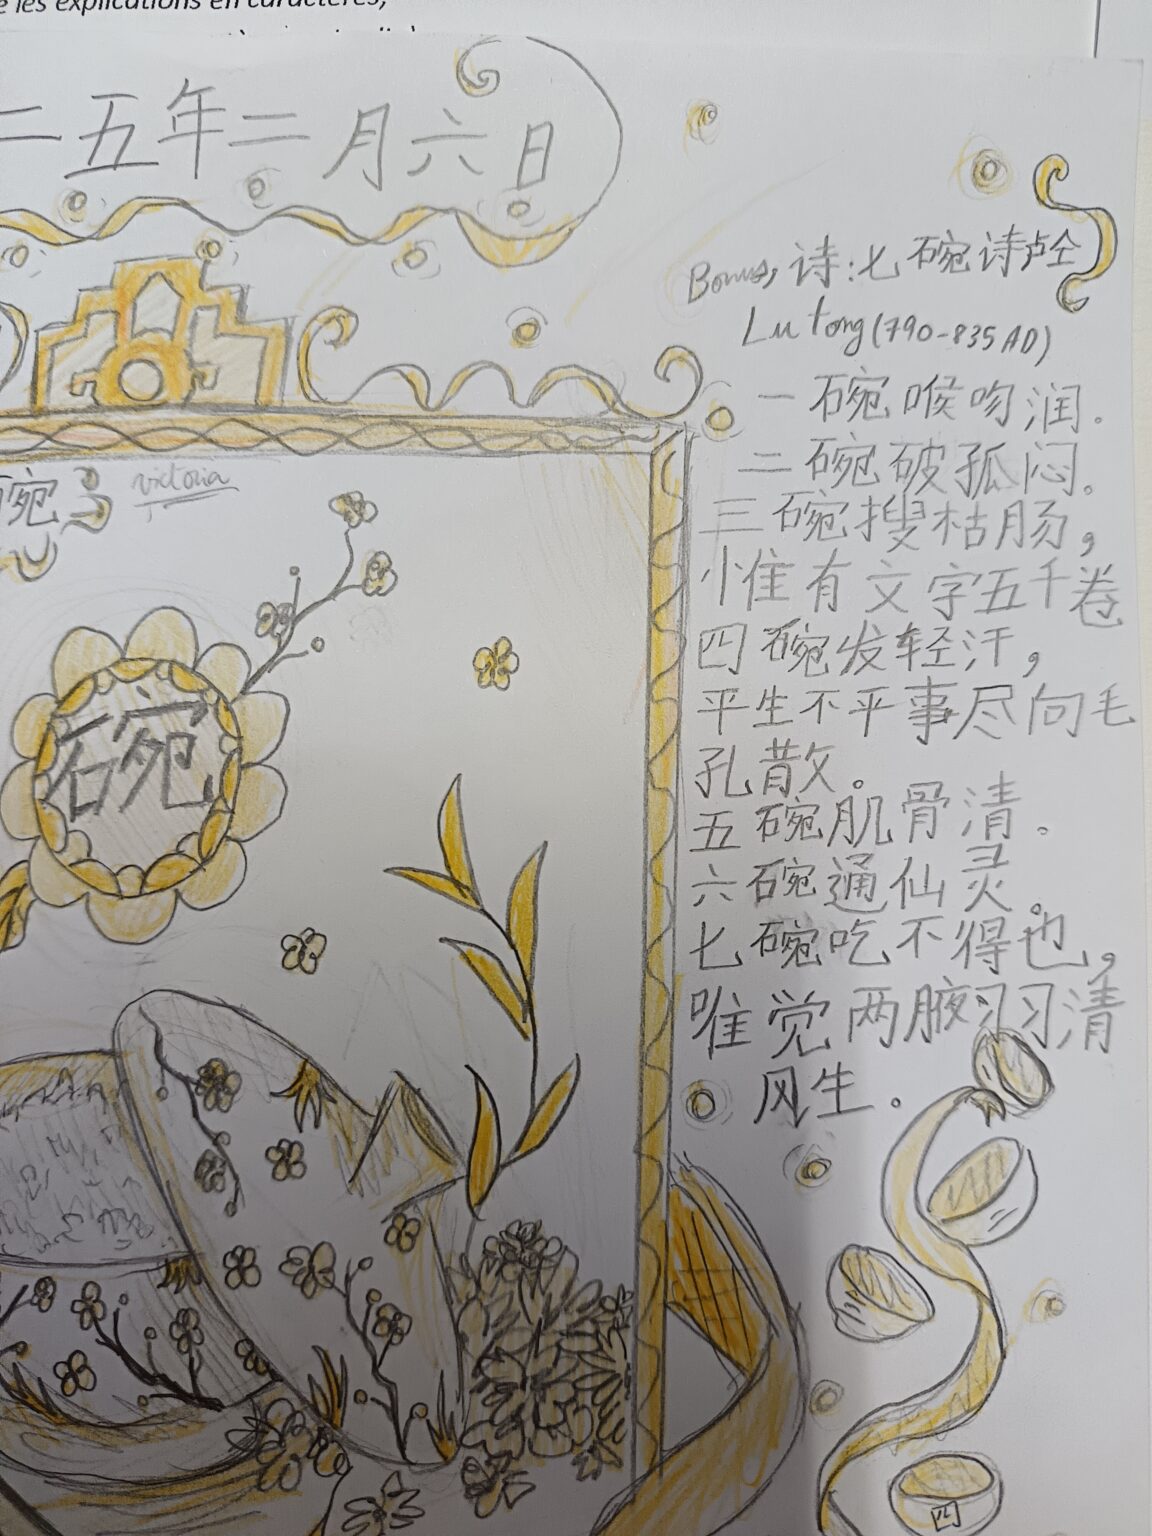 les explications en caractères,
二五年二月六日
Bonus, 诗:七碗诗卢仝
Lu tong (790-835 AD)
一碗喉吻润.
二碗破孤闷。
三碗搜枯肠,
惟有文字五千卷
四碗发轻汗,
平生不平事尽向毛
孔散。
五碗肌骨清。
六碗通仙灵。
七碗吃不得也,
唯觉两腋习习清
风生。
碗
victoria
碗
四